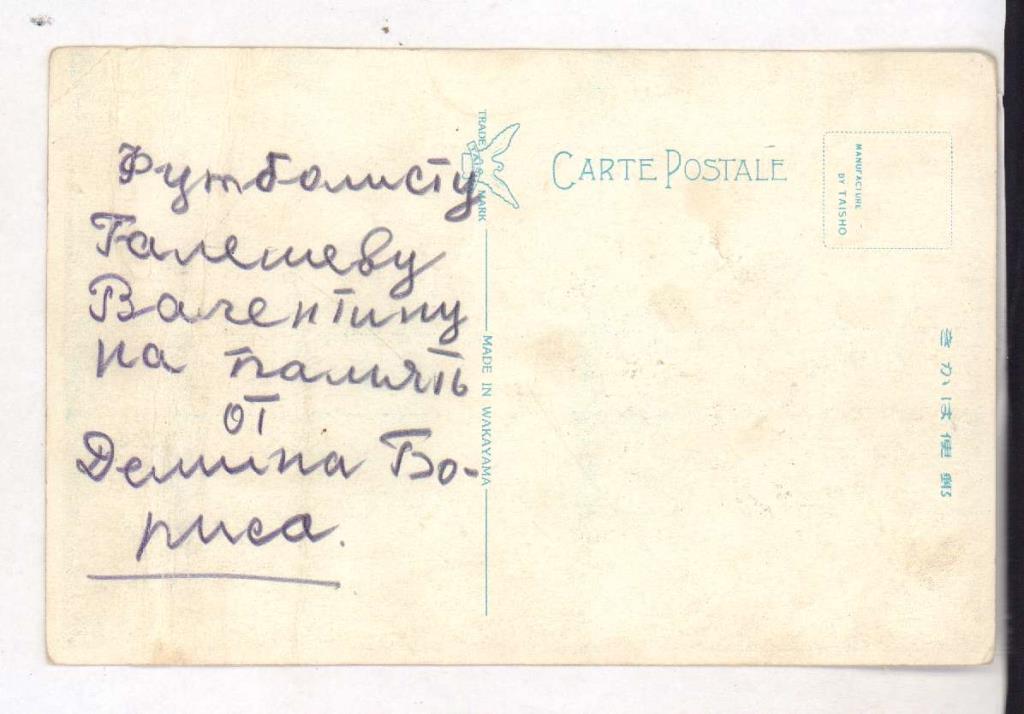 Футболисту
Галешеву
Валентину
на память
от
Демина Бо-
риса.
TRADE MARK
MADE IN WAKAYAMA
CARTE POSTALE
MANUFACTURE
BY TAISHO
きかは便郵